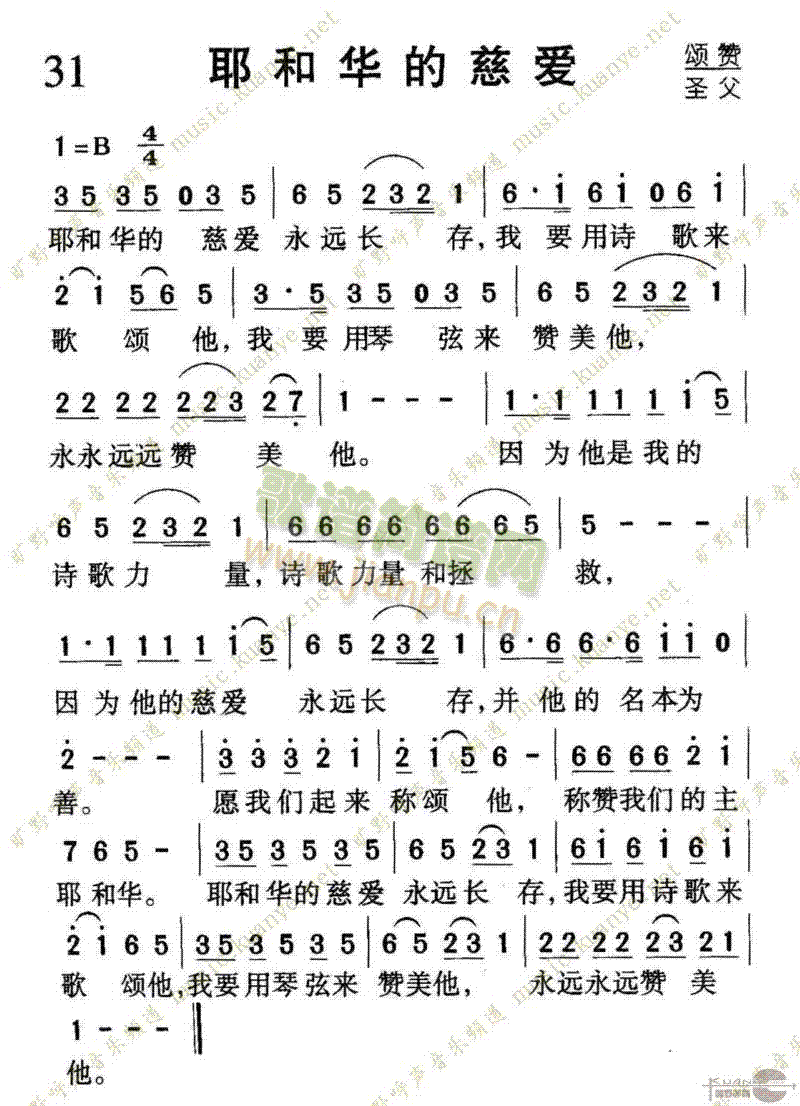 31 耶和华的慈爱 颂赞
圣父
1=B 4/4
3 5 3 5 0 3 5 | 6 5 2 3 2 1 | 6 · i 6 i 0 6 i |
耶和华的 慈爱 永远长 存,我 要用诗 歌来
2 i 5 6 5 | 3 · 5 3 5 0 3 5 | 6 5 2 3 2 1 |
歌 颂 他,我 要用琴 弦来 赞美他,
2 2 2 2 2 2 3 2 7 | 1 - - - | 1 · 1 1 1 1 i 5 |
永永远远赞 美 他。 因 为他是我的
6 5 2 3 2 1 | 6 6 6 6 6 6 6 6 5 | 5 - - - |
诗歌力 量,诗歌力量和拯 救,
1 · 1 1 1 1 i 5 | 6 5 2 3 2 1 | 6 · 6 6 · 6 i i 0 |
因为他的慈爱 永远长 存,并 他的名本为
2 - - - | 3 3 3 2 i | 2 i 5 6 - | 6 6 6 6 2 i |
善。 愿我们起来称颂 他, 称赞我们的主
7 6 5 - | 3 5 3 5 3 5 | 6 5 2 3 1 | 6 i 6 i 6 i |
耶和华。 耶和华的慈爱 永远长 存,我要用诗歌来
2 i 6 5 | 3 5 3 5 3 5 | 6 5 2 3 1 | 2 2 2 2 2 3 2 1 |
歌 颂他,我要用琴弦来 赞美他, 永远永远赞 美
1 - - - ‖
他。
歌谱简谱网
www.jianpu.cn
旷野呼声音乐频道 music.kuanye.net